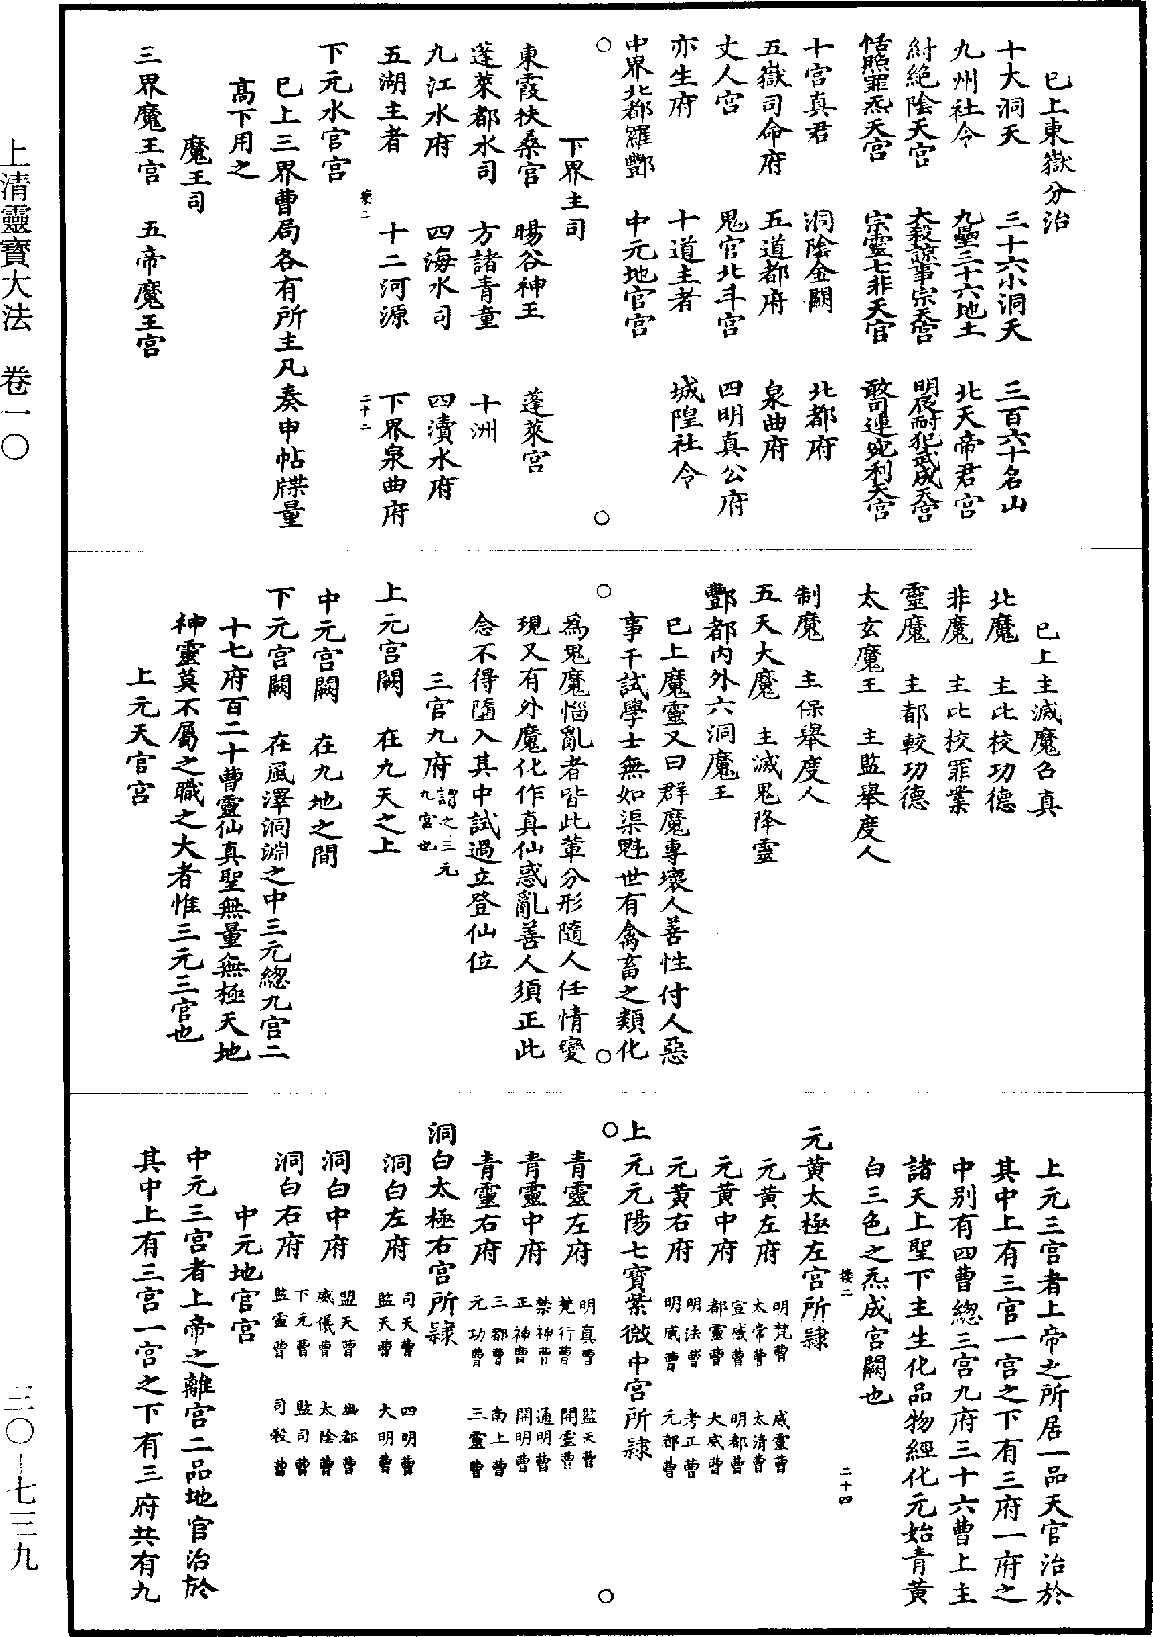 已上東嶽分治
十大洞天　三十六小洞天　三百六十名山
九州社令　九壘三十六地土　北天帝君宫
紂絶陰天宫　太殺諒事宗天宫　明晨耐犯武成天宫
恬照罪炁天宫　宗靈七非天宫　敢司連宛利天宫
十宫真君　洞陰金闕　北都府
五嶽司命府　五道都府　泉曲府
丈人宫　鬼官北斗宫　四明真公府
亦生府　十道主者　城隍社令
中界北都羅酆　中元地官宫
下界主司
東霞扶桑宫　暘谷神王　蓬萊宫
蓬萊都水司　方諸青童　十洲
九江水府　四海水司　四瀆水府
五湖主者　十二河源　下界泉曲府
下元水官宫
已上三界曹局各有所主凡奏申帖牒量
高下用之
魔王司
三界魔王宫　五帝魔王宫
已上主滅魔召真
北魔　主比校功德
非魔　主比校罪業
靈魔　主都較功德
太玄魔王　主監舉度人
制魔　主保舉度人
五天大魔　主滅鬼降靈
酆都内外六洞魔王
已上魔靈又曰群魔專壞人善性付人惡
事千試學士無如渠魁世有禽畜之類化
爲鬼魔惱亂者皆此輩分形隨人任情變
現又有外魔化作真仙惑亂善人須正此
念不得隨入其中試過立登仙位
三官九府謂之三元九宫也
上元宫闕　在九天之上
中元宫闕　在九地之間
下元宫闕　在風澤洞淵之中三元總九宫二
十七府百二十曹靈仙真聖無量無極天地
神靈莫不屬之職之大者惟三元三官也
上元天官宫
上元三宫者上帝之所居一品天官治於
其中上有三宫一宫之下有三府一府之
中别有四曹總三宫九府三十六曹上主
諸天上聖下主生化品物經化元始青黄
白三色之炁成宫闕也
元黄太極左宫所隸
元黄左府　明梵曹　威靈曹　太常曹　太清曹
元黄中府　宣威曹　明都曹　都靈曹　大威曹
元黄右府　明法曹　考正曹　明威曹　元都曹
上元元陽七寶紫微中宫所隸
青靈左府　明真曹　監天曹　梵行曹　開靈曹
青靈中府　禁神曹　通明曹　正神曹　開明曹
青靈右府　三都曹　南上曹　元功曹　三靈曹
洞白太極右宫所隸
洞白左府　司天曹　四明曹　監天曹　大明曹
洞白中府　盟天曹　幽都曹　威儀曹　太陰曹
洞白右府　下元曹　監司曹　監靈曹　司殺曹
中元地官宫
中元三宫者上帝之離宫二品地官治於
其中上有三宫一宫之下有三府共有九
上清靈寶大法　卷一〇
三〇—七三九